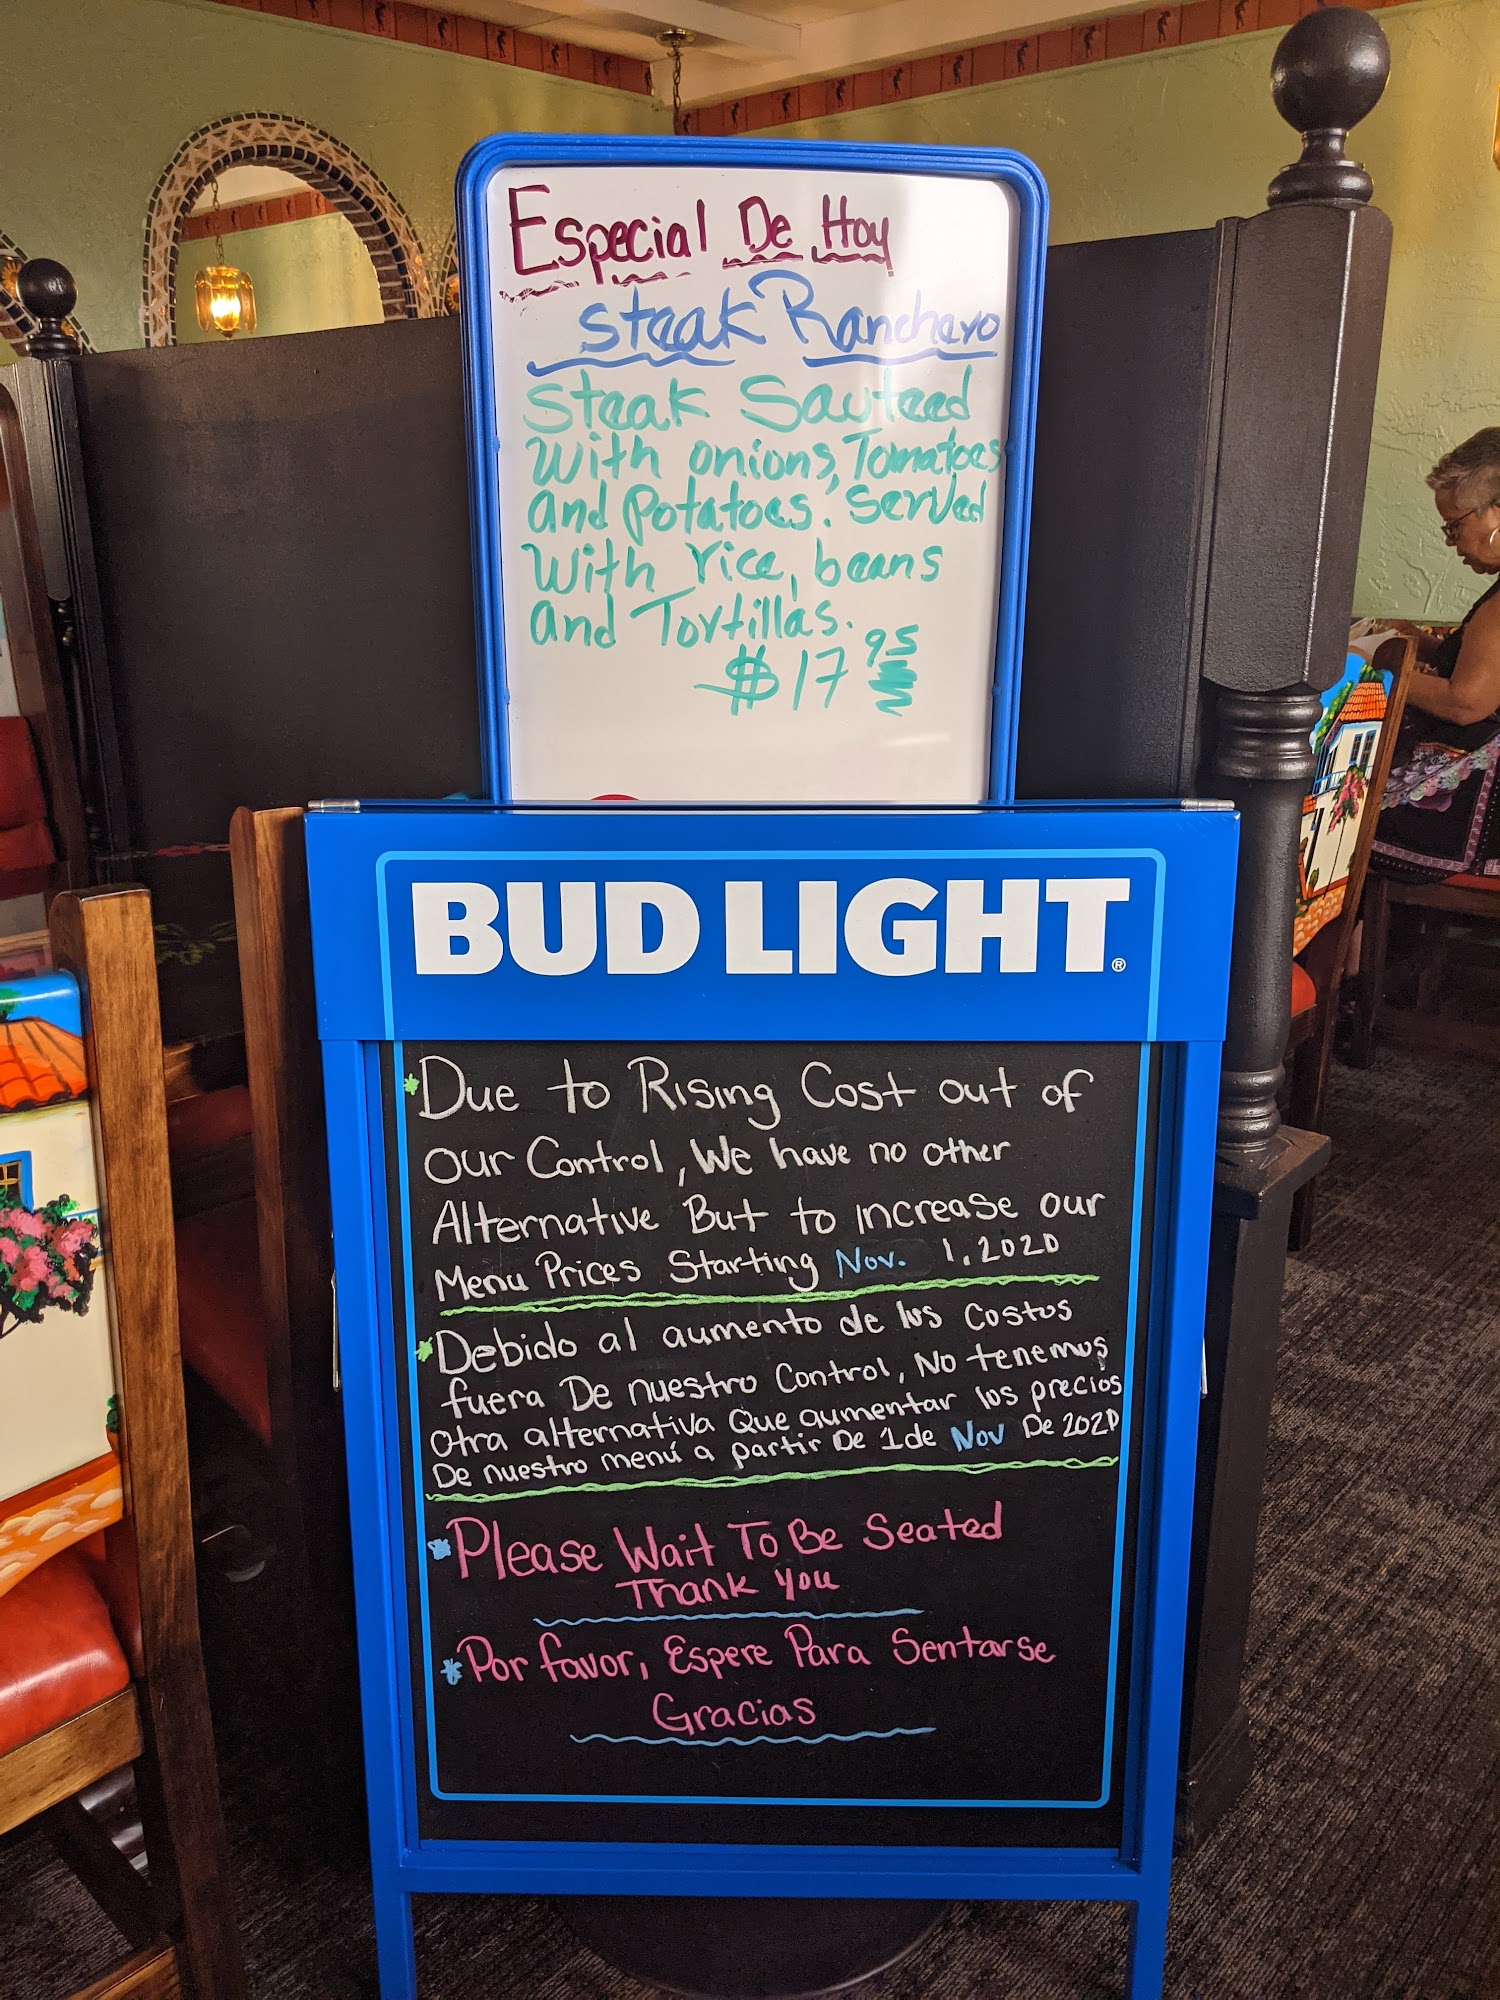 Especial De Hoy
Steak Ranchero
Steak Sauteed
with onions, Tomatoes
and potatoes. Served
with rice, beans
and Tortillas.
$17 95
BUD LIGHT®
*Due to Rising Cost out of
our Control, We have no other
Alternative But to increase our
Menu Prices Starting Nov. 1, 2020
*Debido al aumento de los costos
fuera De nuestro Control, No tenemos
otra alternativa Que aumentar los precios
De nuestro menú a partir De 1 de Nov De 2020
*Please Wait To Be Seated
Thank You
*Por favor, Espere Para Sentarse
Gracias